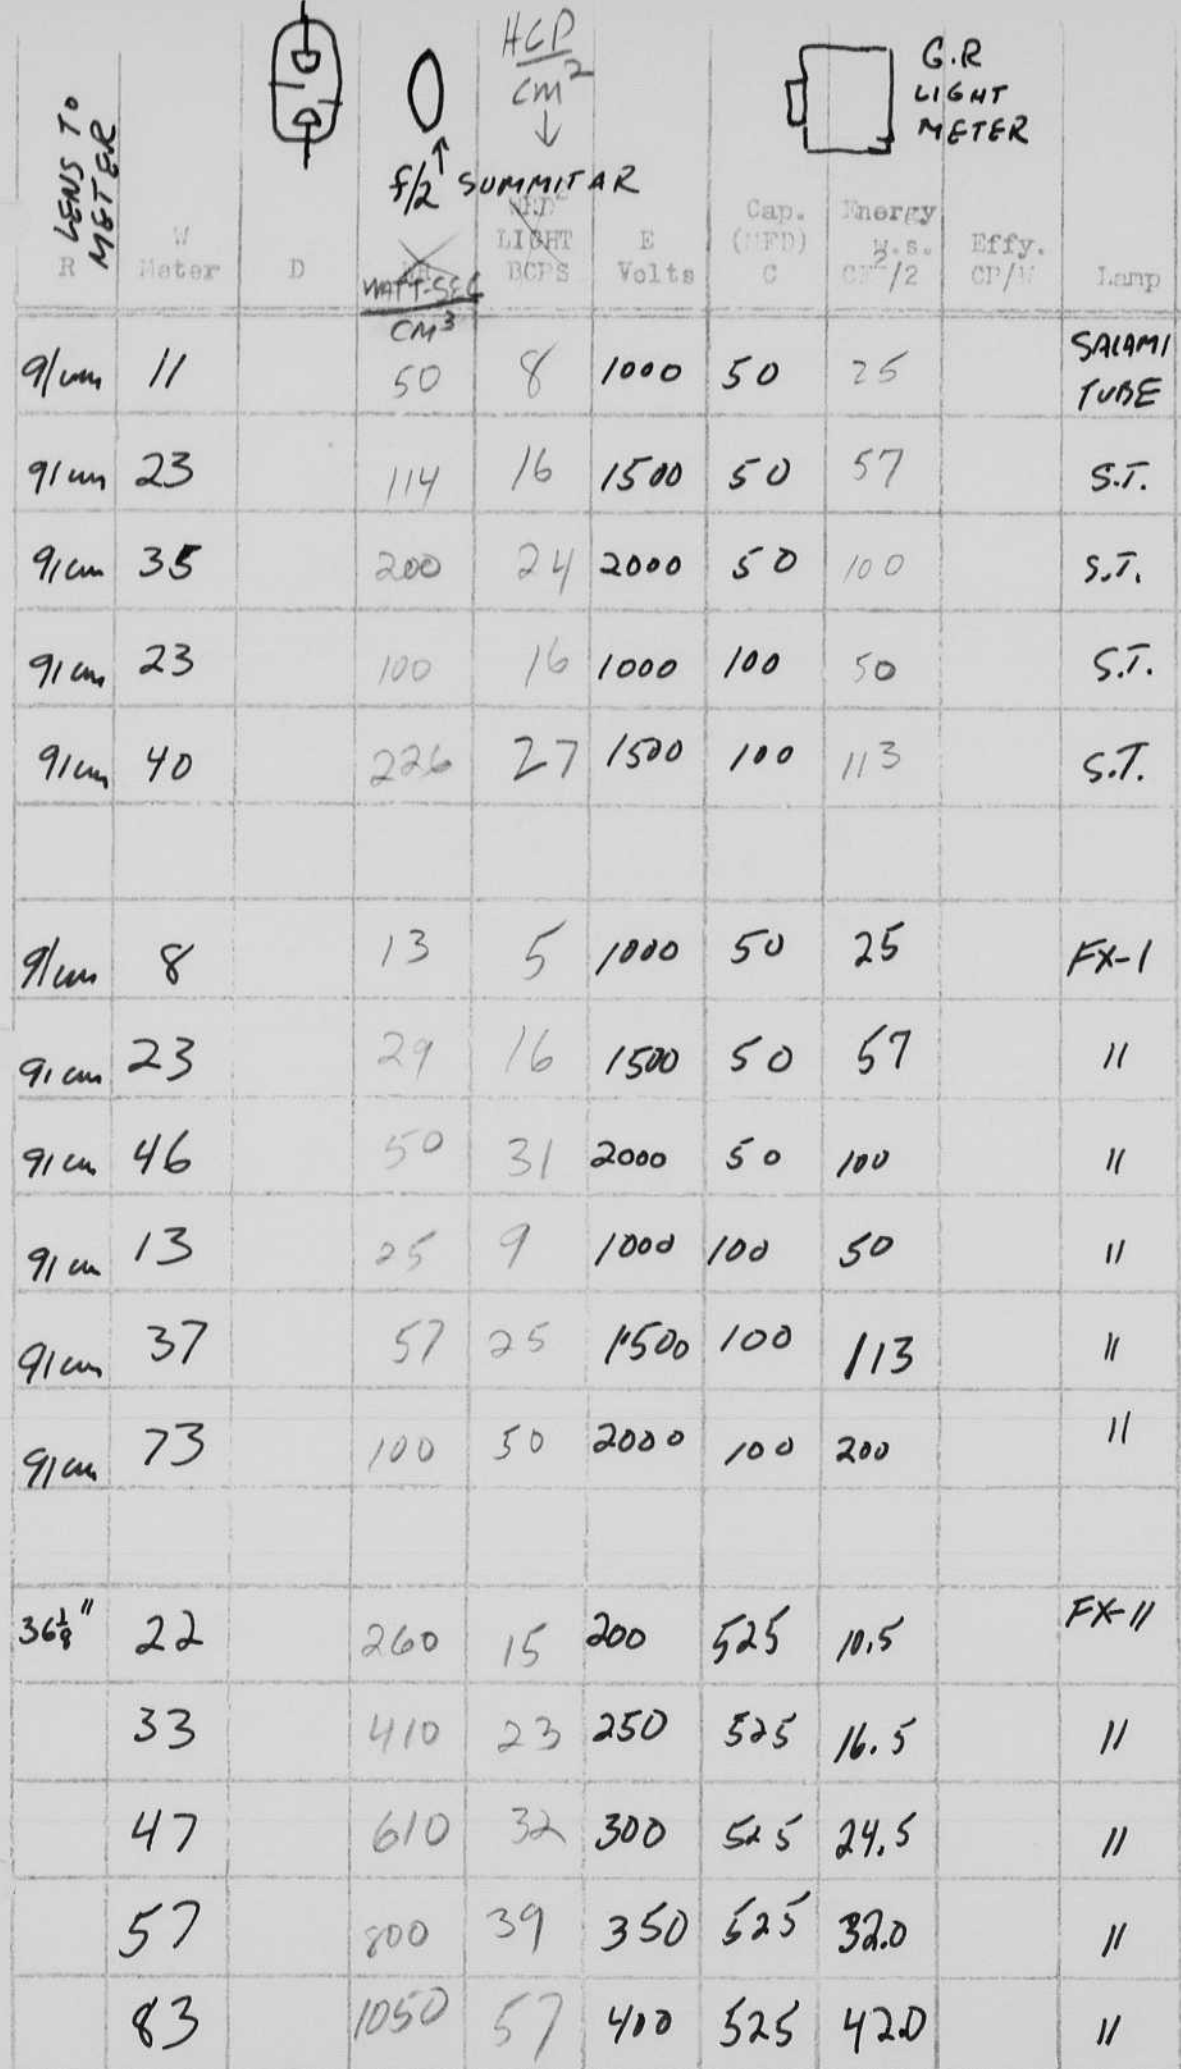 HCP
cm²
G.R
LIGHT
METER
LENS TO
METER
f/2 SUMMITAR
LIGHT
BCPS
R
W
Meter
D
WATT-SEC
CM³
E
Volts
Cap.
(MFD)
C
Energy
w.s.
CE²/2
Effy.
CP/W
Lamp
91cm 11 50 8 1000 50 25 SALAMI TUBE
91cm 23 114 16 1500 50 57 S.T.
91cm 35 200 24 2000 50 100 S.T.
91cm 23 100 16 1000 100 50 S.T.
91cm 40 226 27 1500 100 113 S.T.
91cm 8 13 5 1000 50 25 FX-1
91cm 23 29 16 1500 50 57 "
91cm 46 50 31 2000 50 100 "
91cm 13 25 9 1000 100 50 "
91cm 37 57 25 1500 100 113 "
91cm 73 100 50 2000 100 200 "
36⅛" 22 260 15 200 525 10.5 FX-11
33 410 23 250 525 16.5 "
47 610 32 300 525 24.5 "
57 800 39 350 525 32.0 "
83 1050 57 400 525 42.0 "